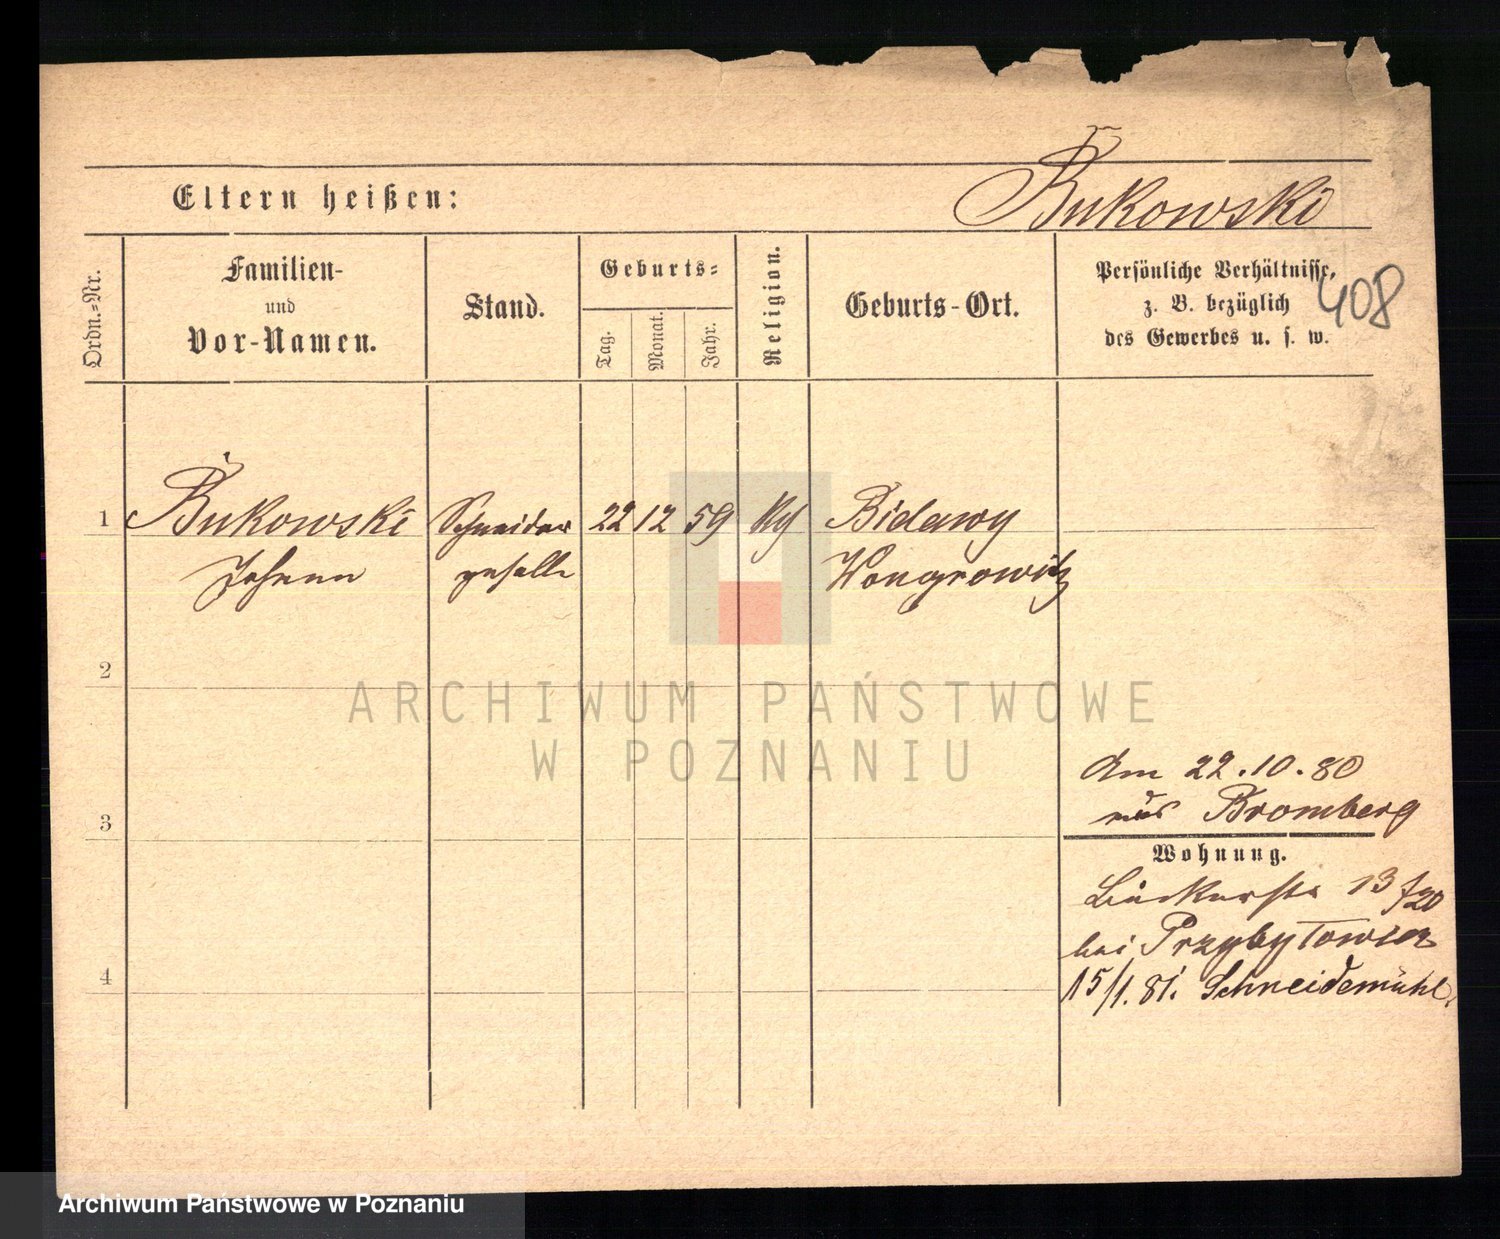 Eltern heißen:
Bukowski
Ordn.-Nr.
Familien-
und
Vor-Namen.
Stand.
Geburts-
Tag.
Monat.
Jahr.
Religion.
Geburts-Ort.
Persönliche Verhältnisse,
z. B. bezüglich
des Gewerbes u. s. w.
408
1 Bukowski Schneider 22 12 59 Bidawy
Johann geselle Wongrowitz
2
ARCHIWUM PAŃSTWOWE
W POZNANIU
Am 22.10.80
aus Bromberg
3
Wohnung.
Bäckerstr 13
bei Przybytowicz
4
15/1.81. Schneidemühl.
Archiwum Państwowe w Poznaniu